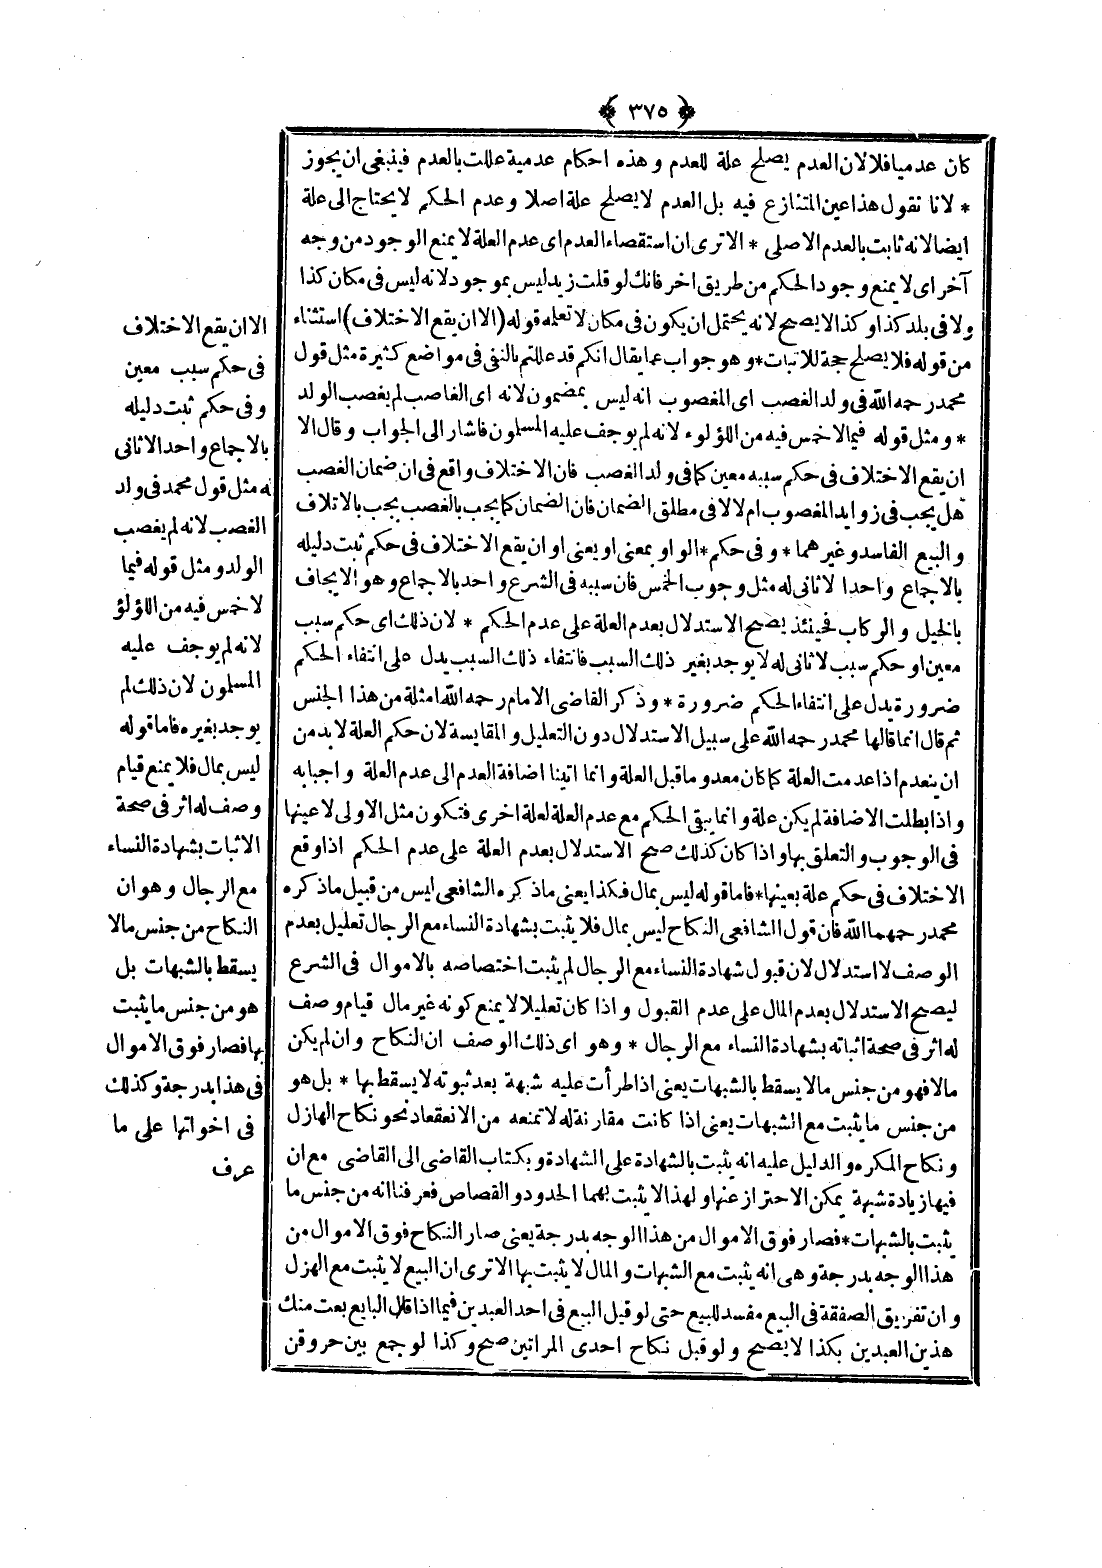 ﴿ ٣٧٥ ﴾
كان عدميا فلا لان العدم يصلح علة للعدم وهذه احكام عدمية عللت بالعدم فينبغى ان يجوز
* لانا نقول هذا عين المتنازع فيه بل العدم لا يصلح علة اصلا وعدم الحكم لا يحتاج الى علة
ايضا لانه ثابت بالعدم الاصلى * الا ترى ان استقصاء العدم اى عدم العلة لا يمنع الوجود من وجه
آخر اى لا يمنع وجود الحكم من طريق اخر فانك لو قلت زيد ليس بموجود لانه ليس فى مكان كذا
ولا فى بلد كذا وكذا لا يصح لانه يحتمل ان يكون فى مكان لا تعلمه قوله (الا ان يقع الاختلاف) استثناء
من قوله فلا يصلح حجة للاثبات * وهو جواب عما يقال انكم قد عللتم بالنفى فى مواضع كثيرة مثل قول
محمد رحمه الله فى ولد الغصب اى المغصوب انه ليس بمضمون لانه اى الغاصب لم يغصب الولد
* ومثل قوله فيما لا خمس فيه من اللؤلوء لانه لم يوجف عليه المسلمون فاشار الى الجواب وقال الا
ان يقع الاختلاف فى حكم سببه معين كما فى ولد الغصب فان الاختلاف واقع فى ان ضمان الغصب
هل يجب فى زوايد المغصوب ام لا لا فى مطلق الضمان فان الضمان كما يجب بالغصب يجب بالاتلاف
والبيع الفاسد وغيرهما * وفى حكم * الواو بمعنى او يعنى او ان يقع الاختلاف فى حكم ثبت دليله
بالاجماع واحدا لا ثانى له مثل وجوب الخمس فان سببه فى الشرع واحد بالاجماع وهو الايجاف
بالخيل والركاب فحينئذ يصح الاستدلال بعدم العلة على عدم الحكم * لان ذلك اى حكم سبب
معين او حكم سبب لا ثانى له لا يوجد بغير ذلك السبب فانتفاء ذلك السبب يدل على انتفاء الحكم
ضرورة يدل على انتفاء الحكم ضرورة * وذكر القاضى الامام رحمه الله امثلة من هذا الجنس
ثم قال انما قالها محمد رحمه الله على سبيل الاستدلال دون التعليل والمقايسة لان حكم العلة لا بد من
ان ينعدم اذا عدمت العلة كما كان معدوما قبل العلة وانما اتينا اضافة العدم الى عدم العلة واجبا به
واذا بطلت الاضافة لم يكن علة وانما يبقى الحكم مع عدم العلة لعلة اخرى فتكون مثل الاولى لا عينها
فى الوجوب والتعلق بها واذا كان كذلك صح الاستدلال بعدم العلة على عدم الحكم اذا وقع
الاختلاف فى حكم علة بعينها * فاما قوله ليس بمال فكذا يعنى ما ذكره الشافعى ليس من قبيل ما ذكره
محمد رحمهما الله فان قول الشافعى النكاح ليس بمال فلا يثبت بشهادة النساء مع الرجال تعليل بعدم
الوصف لا استدلال لان قبول شهادة النساء مع الرجال لم يثبت اختصاصه بالاموال فى الشرع
ليصح الاستدلال بعدم المال على عدم القبول واذا كان تعليلا لا يمنع كونه غير مال قيام وصف
له اثر فى صحة اثباته بشهادة النساء مع الرجال * وهو اى ذلك الوصف ان النكاح وان لم يكن
مالا فهو من جنس ما لا يسقط بالشبهات يعنى اذا طرأت عليه شبهة بعد ثبوته لا يسقط بها * بل هو
من جنس ما يثبت مع الشبهات يعنى اذا كانت مقارنة له لا تمنعه من الانعقاد نحو نكاح الهازل
ونكاح المكره والدليل عليه انه يثبت بالشهادة على الشهادة وبكتاب القاضى الى القاضى مع ان
فيها زيادة شبهة يمكن الاحتراز عنها ولهذا لا يثبت بهما الحدود والقصاص فعرفنا انه من جنس ما
يثبت بالشبهات * فصار فوق الاموال من هذا الوجه بدرجة يعنى صار النكاح فوق الاموال من
هذا الوجه بدرجة وهى انه يثبت مع الشبهات والمال لا يثبت بها الا ترى ان البيع لا يثبت مع الهزل
وان تفريق الصفقة فى البيع مفسد للبيع حتى لو قبل البيع فى احد العبدين فيما اذا قال البايع بعت منك
هذين العبدين بكذا لا يصح ولو قبل نكاح احدى المراتين صح وكذا لو جمع بين حر وقن
الا ان يقع الاختلاف
فى حكم سبب معين
وفى حكم ثبت دليله
بالاجماع واحد الاثانى
له مثل قول محمد فى ولد
الغصب لانه لم يغصب
الولد ومثل قوله فيما
لا خمس فيه من اللؤلؤ
لانه لم يوجف عليه
المسلمون لان ذلك لم
يوجد بغيره فاما قوله
ليس بمال فلا يمنع قيام
وصف له اثر فى صحة
الاثبات بشهادة النساء
مع الرجال وهو ان
النكاح من جنس ما لا
يسقط بالشبهات بل
هو من جنس ما يثبت
بها فصار فوق الاموال
فى هذا بدرجة وكذلك
فى اخواتها على ما
عرف